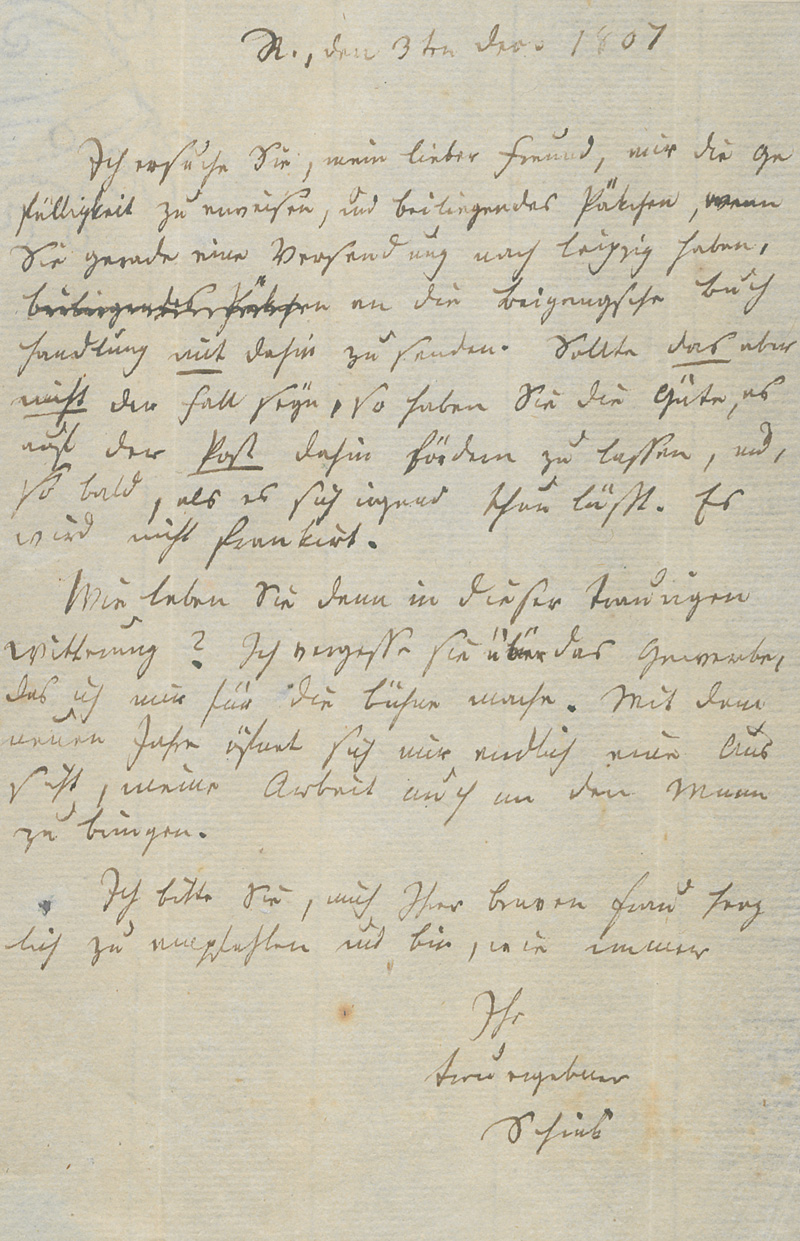 R., den 3ten Dec. 1807
Ich ersuche Sie, mein lieber Freund, mir die Ge
fälligkeit zu erweisen, und beiliegendes Päkchen, wenn
Sie gerade eine Versendung nach Leipzig haben,
beiliegendes Päkchen an die Beigangsche Buch
handlung mit dahin zu senden. Sollte das aber
nicht der Fall seyn, so haben Sie die Güte, es
auf der Post dahin fördern zu lassen, und,
so bald, als es sich irgend thun läßt. Es
wird nicht frankirt.
Wie leben Sie denn in dieser traurigen
Witterung? Ich vergesse sie über das Gewerbe,
das ich mir für die Bühne mache. Mit dem
neuen Jahre öfnet sich mir endlich eine Aus
sicht, meine Arbeit auch an den Mann
zu bringen.
Ich bitte Sie, mich Ihrer braven Frau herz
lich zu empfehlen und bin, wie immer
Ihr
treu ergebner
Schink